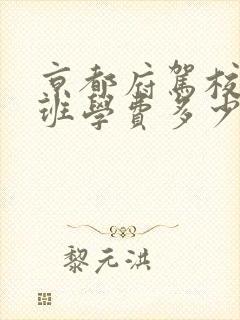 京都府駕校
班學費多少
黎元洪